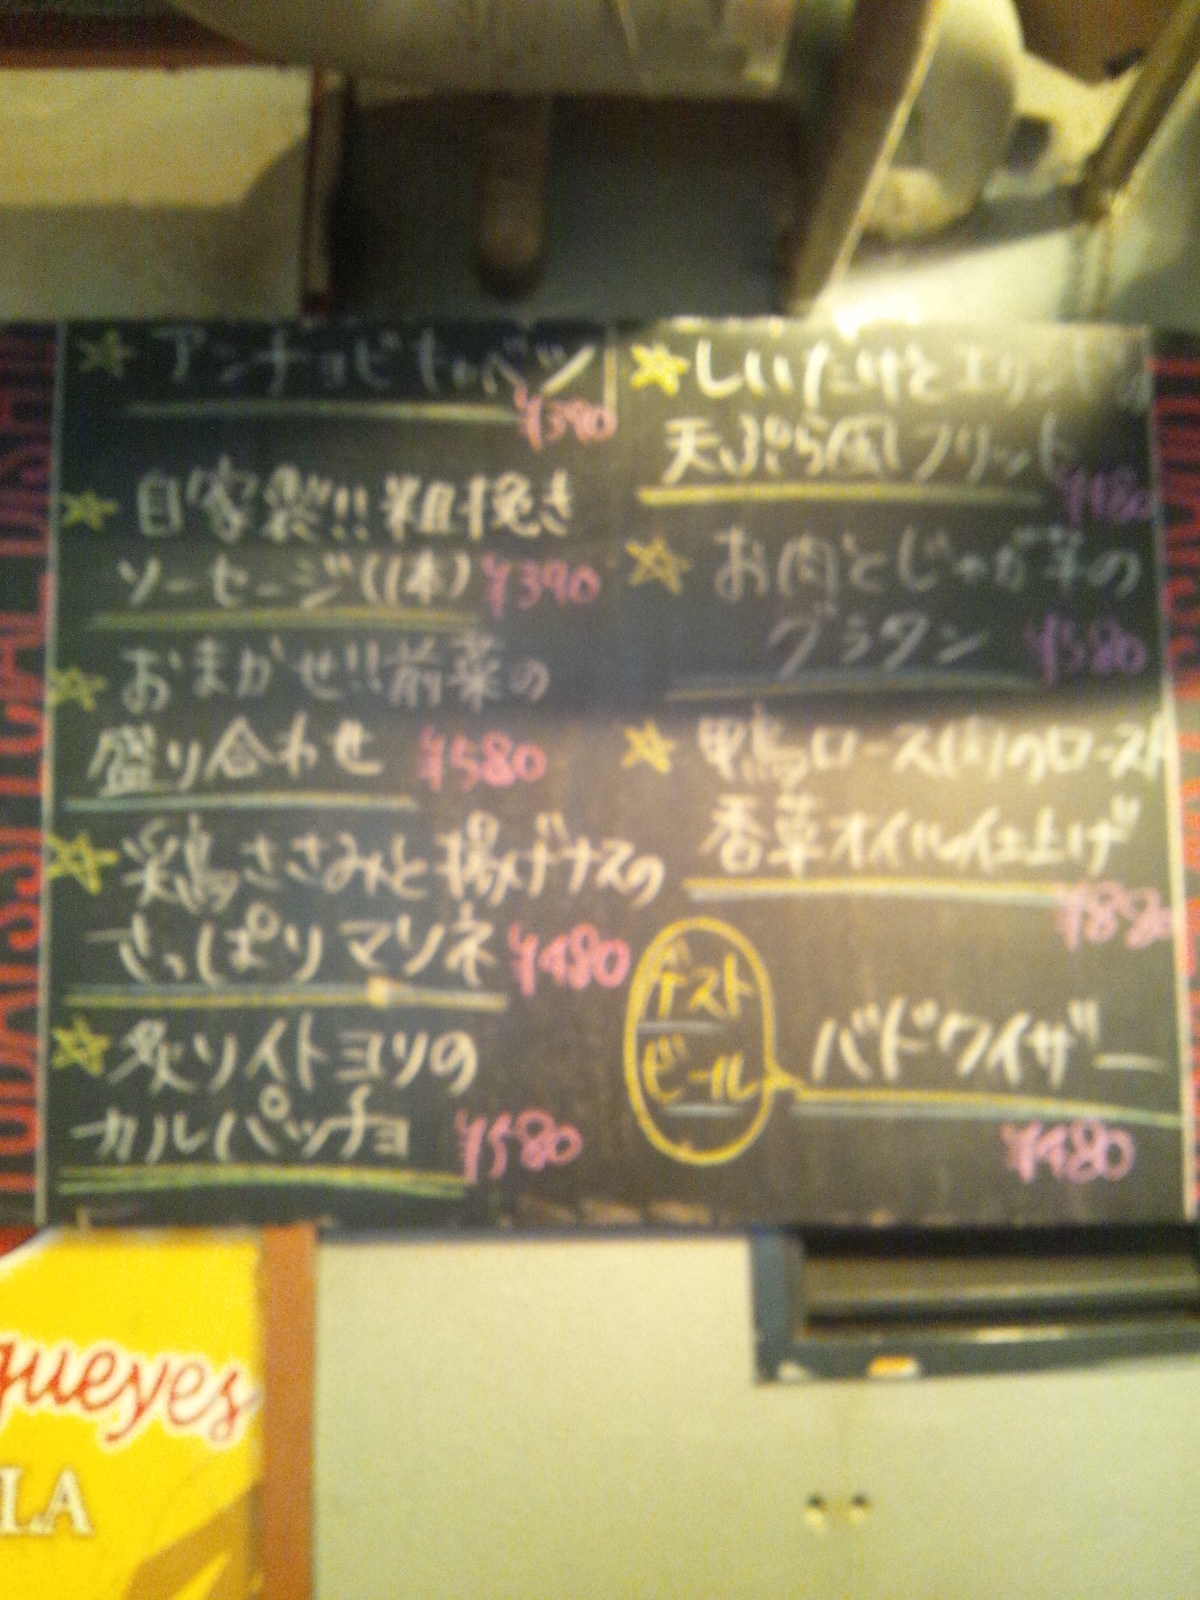 ☆アンチョビキャベツ
¥390
☆自家製!!粗挽き
ソーセージ(1本) ¥390
☆おまかせ!!前菜の
盛り合わせ ¥580
☆彩鳥ささみと揚げナスの
さっぱりマリネ ¥480
☆炙りイトヨリの
カルパッチョ ¥580
☆しいたけとエリンギの
天ぷら風フリット
¥480
☆お肉とじゃが芋の
グラタン ¥580
☆鴨ロース肉のロースト
香草オイル仕上げ
¥880
ゲスト
ビール
バドワイザー
¥480
gueyes
LA